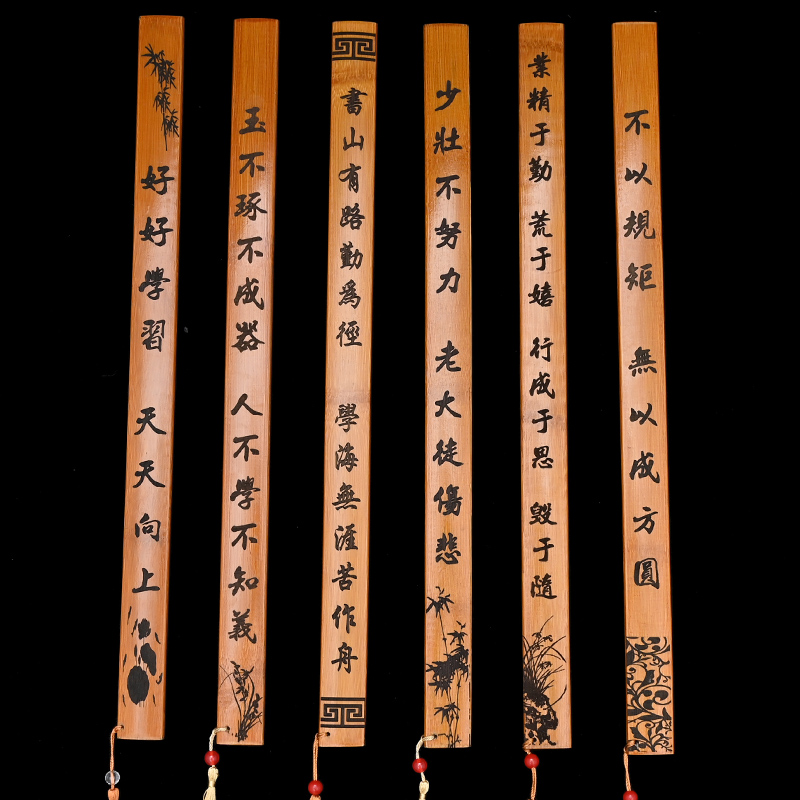 好好學習 天天向上
玉不琢不成器 人不學不知義
書山有路勤為徑 學海無涯苦作舟
少壯不努力 老大徒傷悲
業精于勤 荒于嬉 行成于思 毀于隨
不以規矩 無以成方圓